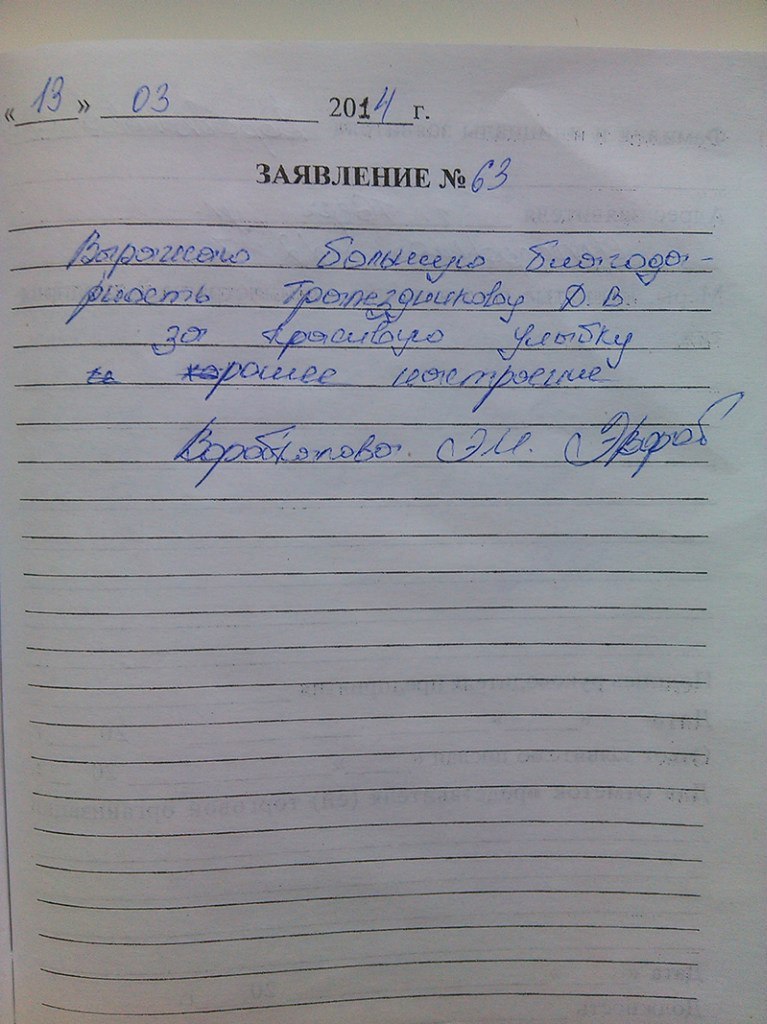 « 13 » 03 2014 г.
ЗАЯВЛЕНИЕ № 63
Выражаю большую благода-
рность Трапездникову Д. В.
за красивую улыбку
и хорошее настроение
Э.И.